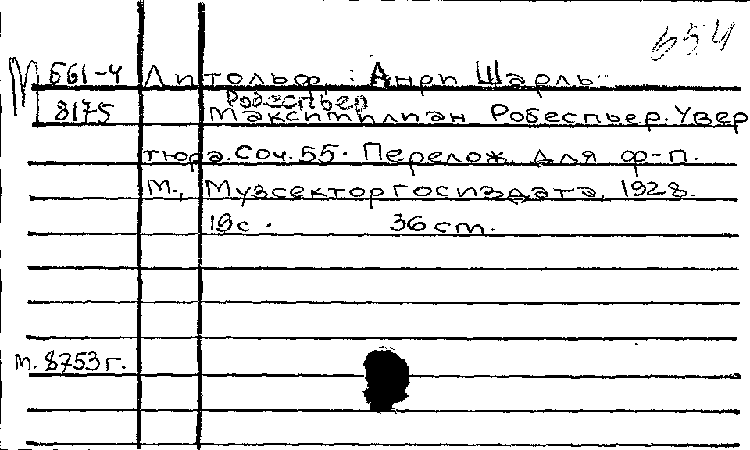 654
М 561-4 Литольф : Анри Шарль
Робеспьер
8175 Максимилиан Робеспьер. Увер
тюра. Соч. 55. Перелож. для ф-п.
М., Музсектор Госиздата, 1928.
19 с. 36 cm.
м. 8753 г.